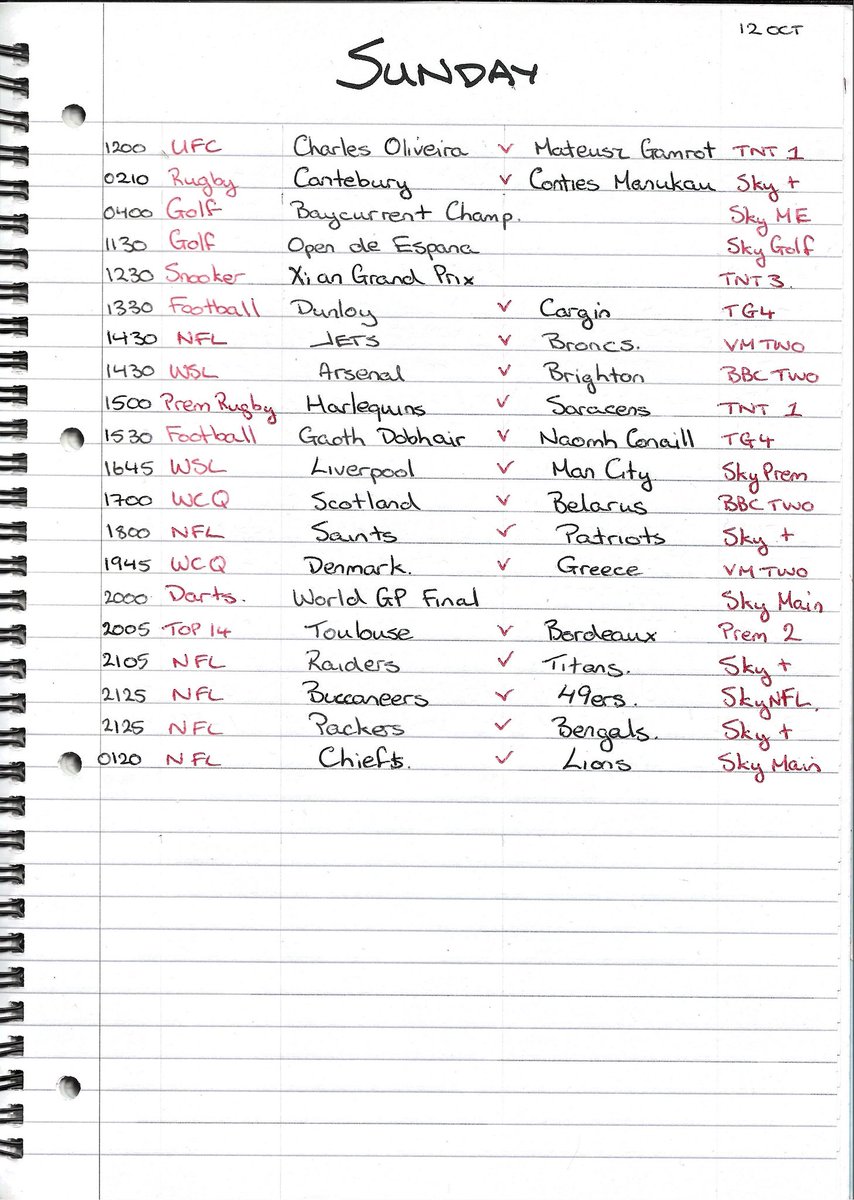 12 OCT
SUNDAY
1200 UFC Charles Oliveira v Mateusz Gamrot TNT 1
0210 Rugby Cantebury v Conties Manukau Sky +
0400 Golf Baycurrent Champ. Sky ME
1130 Golf Open de Espana Sky Golf
1230 Snooker Xi an Grand Prix TNT 3.
1330 Football Dunloy v Cargin TG4
1430 NFL JETS v Broncs. VM TWO
1430 WSL Arsenal v Brighton BBC TWO
1500 Prem Rugby Harlequins v Saracens TNT 1
1530 Football Gaoth Dobhair v Naomh Conaill TG4
1645 WSL Liverpool v Man City Sky Prem
1700 WCQ Scotland v Belarus BBC TWO
1800 NFL Saints v Patriots Sky +
1945 WCQ Denmark. v Greece VM TWO
2000 Darts. World GP Final Sky Main
2005 TOP 14 Toulouse v Bordeaux Prem 2
2105 NFL Raiders v Titans. Sky +
2125 NFL Buccaneers v 49ers. Sky NFL.
2125 NFL Packers v Bengals. Sky +
0120 NFL Chiefs. v Lions Sky Main